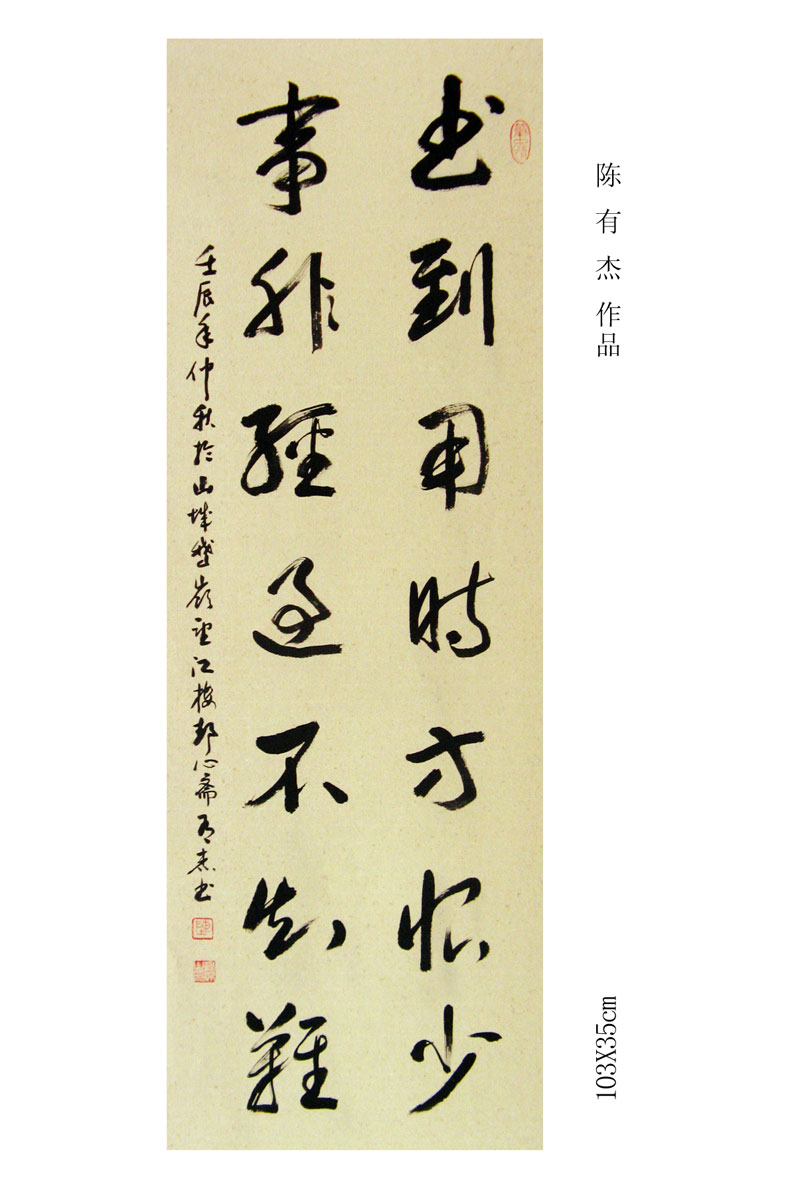 书到用时方恨少
事非經过不知難
壬辰年仲秋於山城鹅岭望江楼静心斋有杰书
陈有杰作品
103X35cm